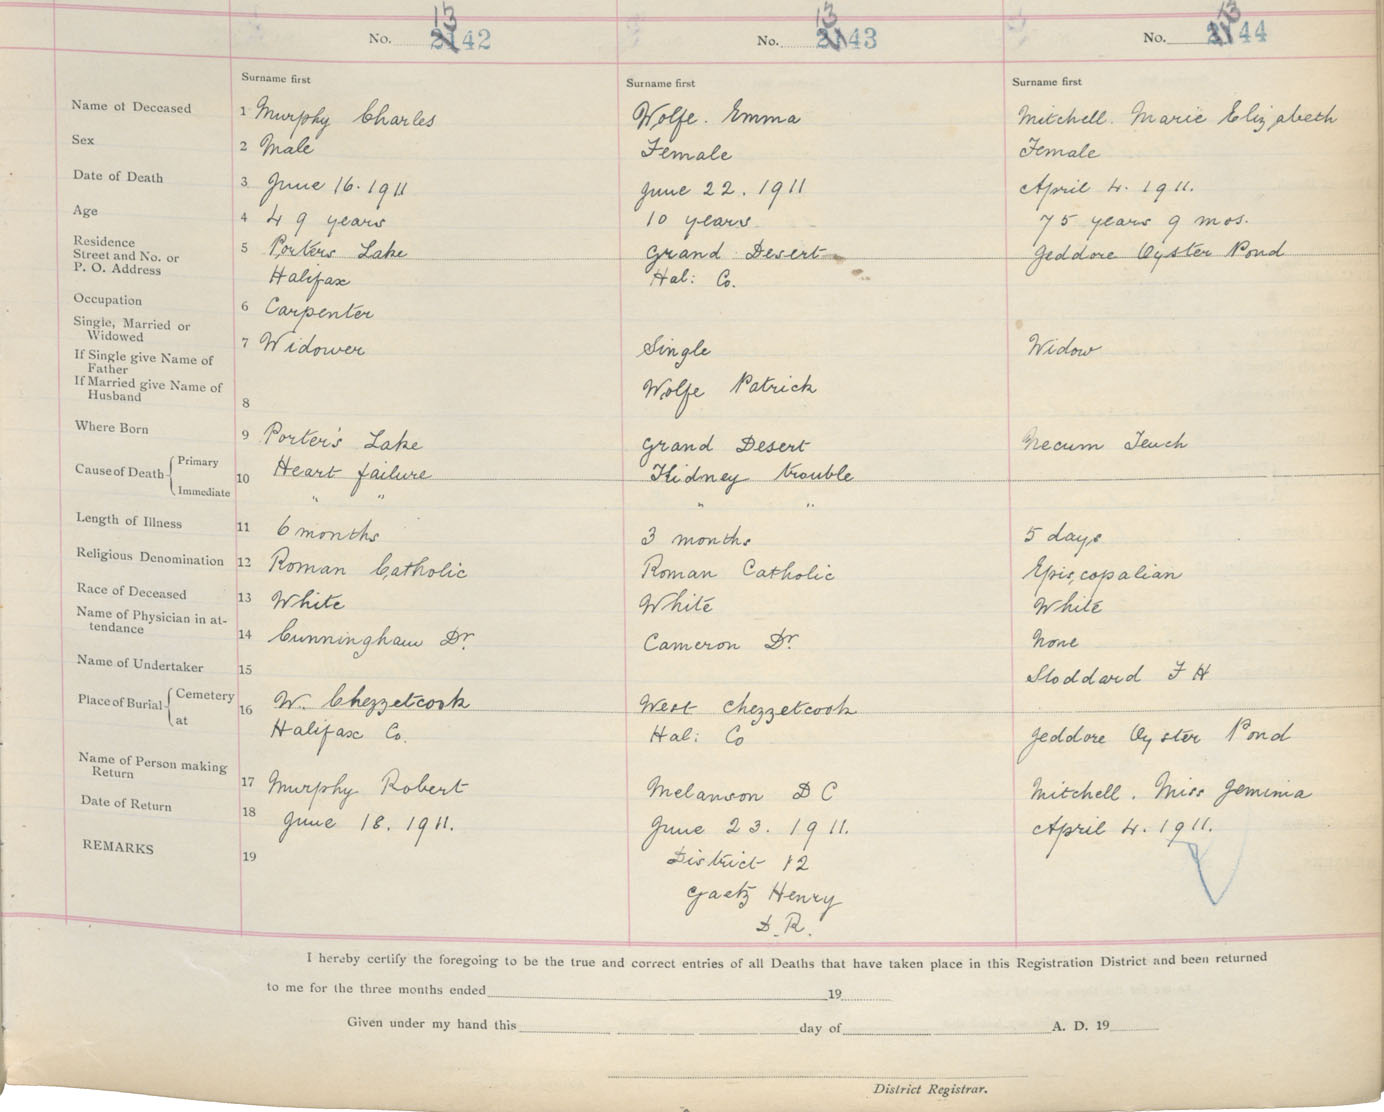 No. 13 42 No. 13 43 No. 13 44
Surname first Surname first Surname first
Name of Deceased 1 Murphy Charles Wolfe. Emma Mitchell. Marie Elizabeth
Sex 2 Male Female Female
Date of Death 3 June 16. 1911 June 22. 1911 April 4. 1911.
Age 4 49 years 10 years 75 years 9 mos.
Residence
Street and No. or 5 Porters Lake Grand Desert Jeddore Oyster Pond
P. O. Address Halifax Hal: Co.
Occupation 6 Carpenter
Single, Married or
Widowed 7 Widower Single Widow
If Single give Name of
Father
If Married give Name of Wolfe Patrick
Husband 8
Where Born 9 Porter's Lake Grand Desert Necum Teuch
Cause of Death Primary 10 Heart failure Kidney trouble
Immediate " " " "
Length of Illness 11 6 months 3 months 5 days
Religious Denomination 12 Roman Catholic Roman Catholic Episcopalian
Race of Deceased 13 White White White
Name of Physician in at-
tendance 14 Cunningham Dr. Cameron Dr. None
Name of Undertaker 15 Stoddard F H
Place of Burial Cemetery 16 W. Chezzetcook West Chezzetcook
at Halifax Co. Hal: Co Jeddore Oyster Pond
Name of Person making
Return 17 Murphy Robert Melanson D C Mitchell. Miss Jemima
Date of Return 18 June 18. 1911. June 23. 1911. April 4. 1911.
REMARKS 19 District 12
Gaetz Henry
D. R.
I hereby certify the foregoing to be the true and correct entries of all Deaths that have taken place in this Registration District and been returned
to me for the three months ended 19
Given under my hand this day of A. D. 19
District Registrar.